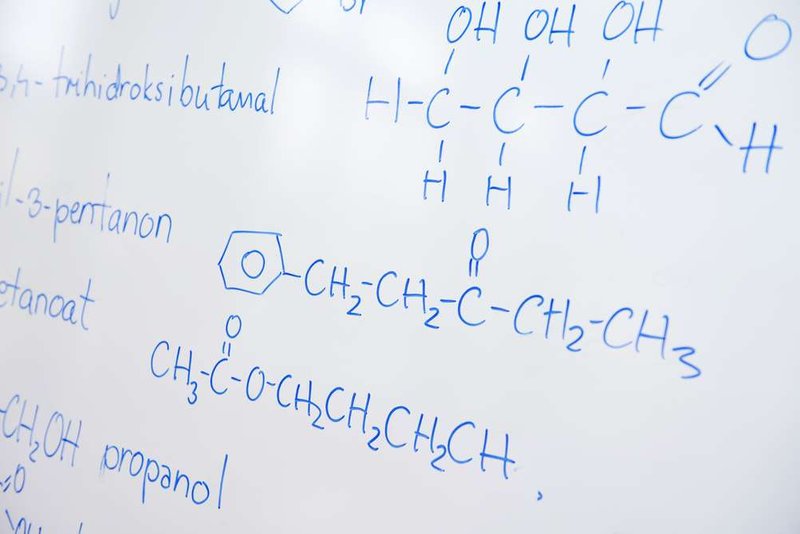 OH OH OH
3,4-trihidroksibutanal H-C-C-C-C=O
H
H H H
-3-pentanon
O
-CH2-CH2-C-CH2-CH3
etanoat
O
CH3-C-O-CH2CH2CH2CH
-CH2OH propanol
=O